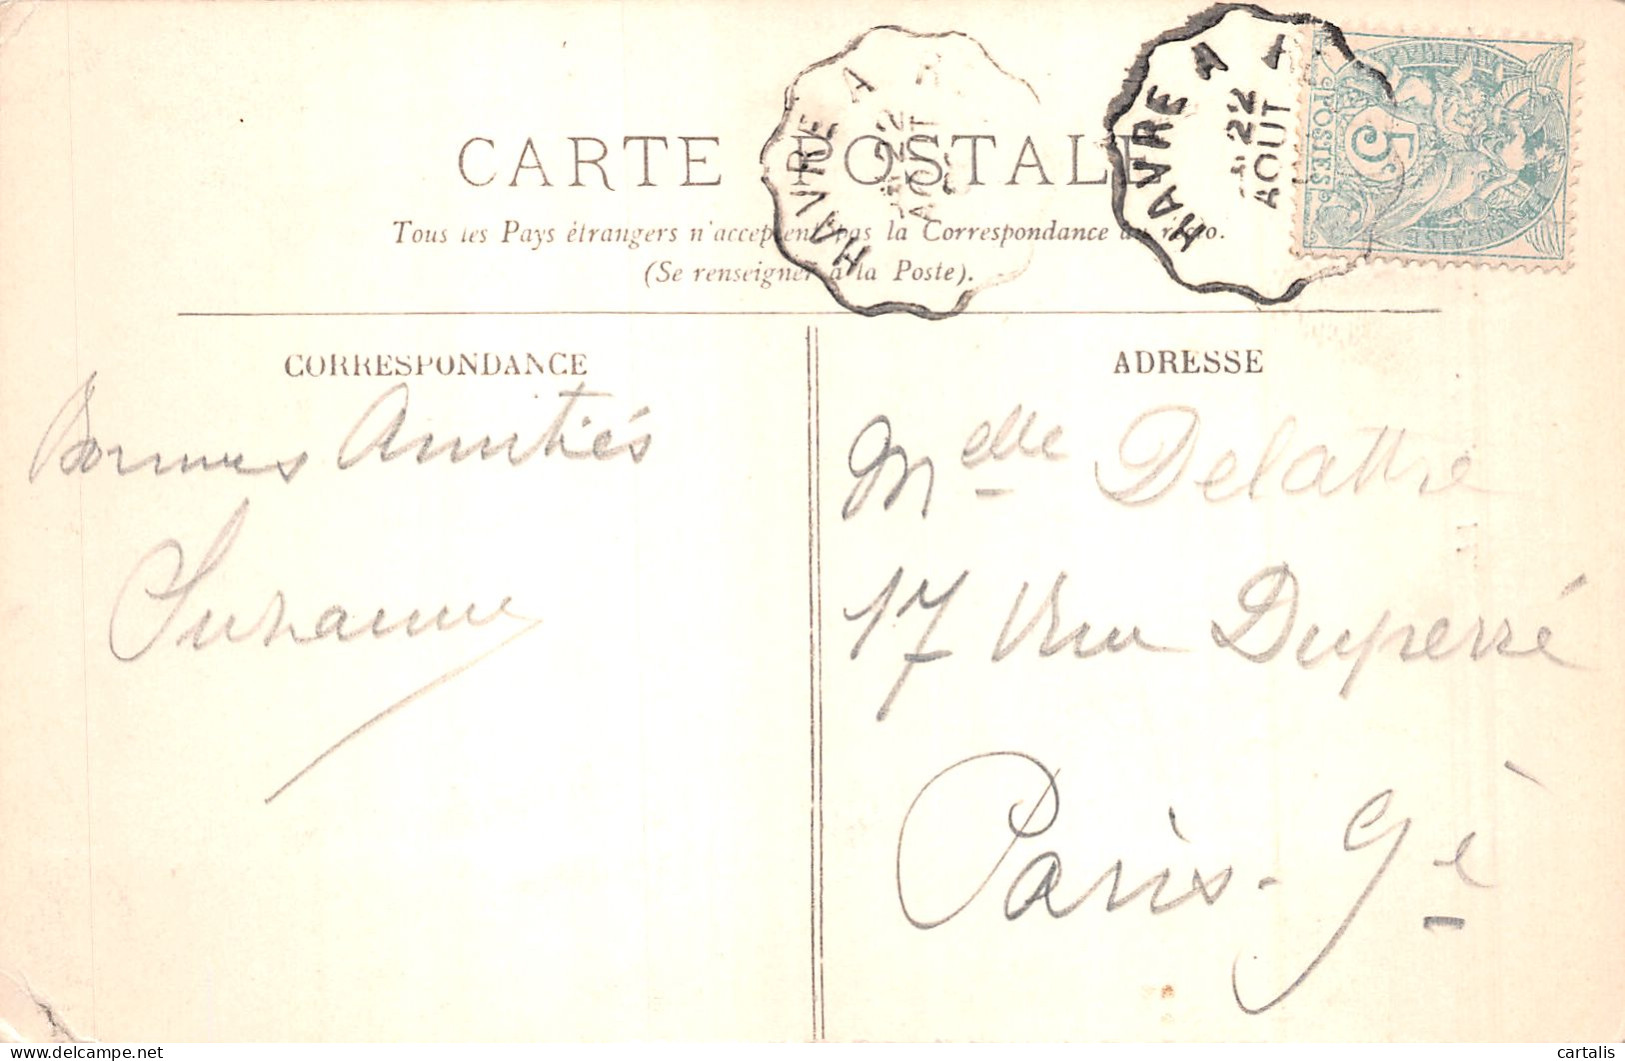 CARTE POSTALE
Tous les Pays étrangers n'acceptent pas la Correspondance au recto.
(Se renseigner à la Poste).
HAVRE A
22
AOUT
HAVRE A
22
AOUT
POSTES
5c
CORRESPONDANCE
Bonnes Amitiés
Suzanne
ADRESSE
Melle Delattre
17 Rue Duperré
Paris - 9è
cartalis